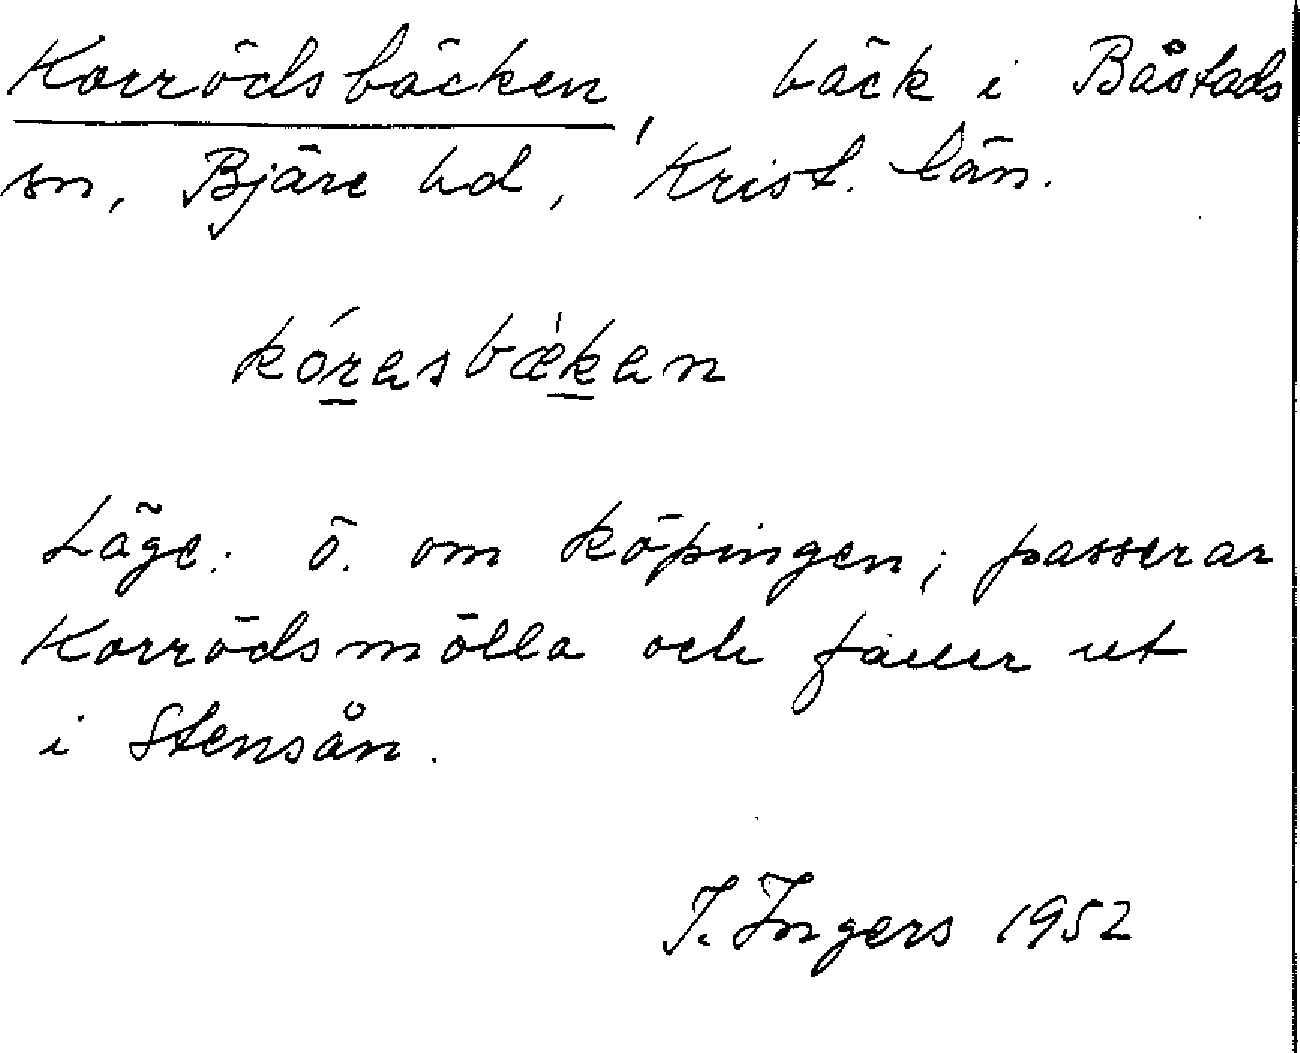 Korrödsbäcken, bäck i Båstads
sn, Bjäre hd, Krist. län.
kórasbækan
Läge: ö. om köpingen; passerar
Korrödsmölla och faller ut
i Stensån.
I. Ingers 1952